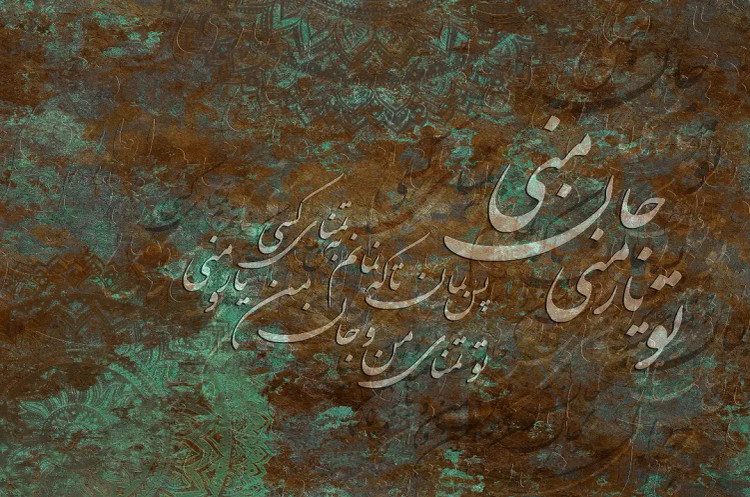 جان منی
تو یار منی
پس بمان تا که نمانم به تمنای کسی
تو تمنای من و جان من و یار منی